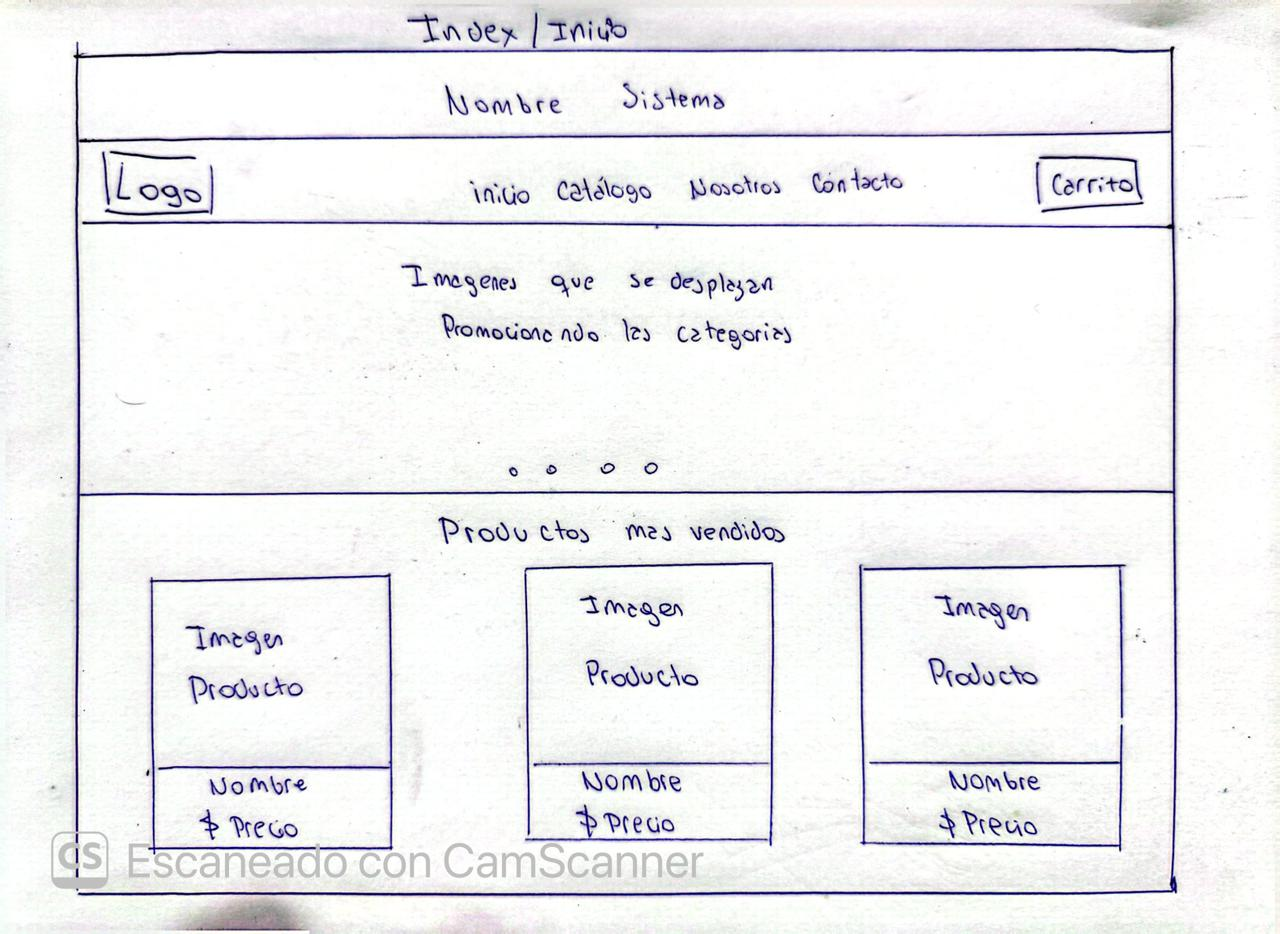 Index / Inicio
Nombre Sistema
Logo inicio Catálogo Nosotros Contacto Carrito
Imagenes que se desplazan
Promocionando las categorias
Productos mas vendidos
Imagen Imagen Imagen
Producto Producto Producto
Nombre Nombre Nombre
$ Precio $ Precio $ Precio
CS Escaneado con CamScanner